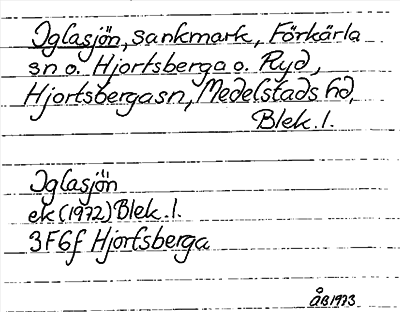 Iglasjön, sankmark, Förkärla
sn o. Hjortsberga o. Ryd,
Hjortsbergasn, Medelstads hd,
Blek. l.
Iglasjön
ek (1972) Blek. l.
3F6f Hjortsberga
ÅB 1973